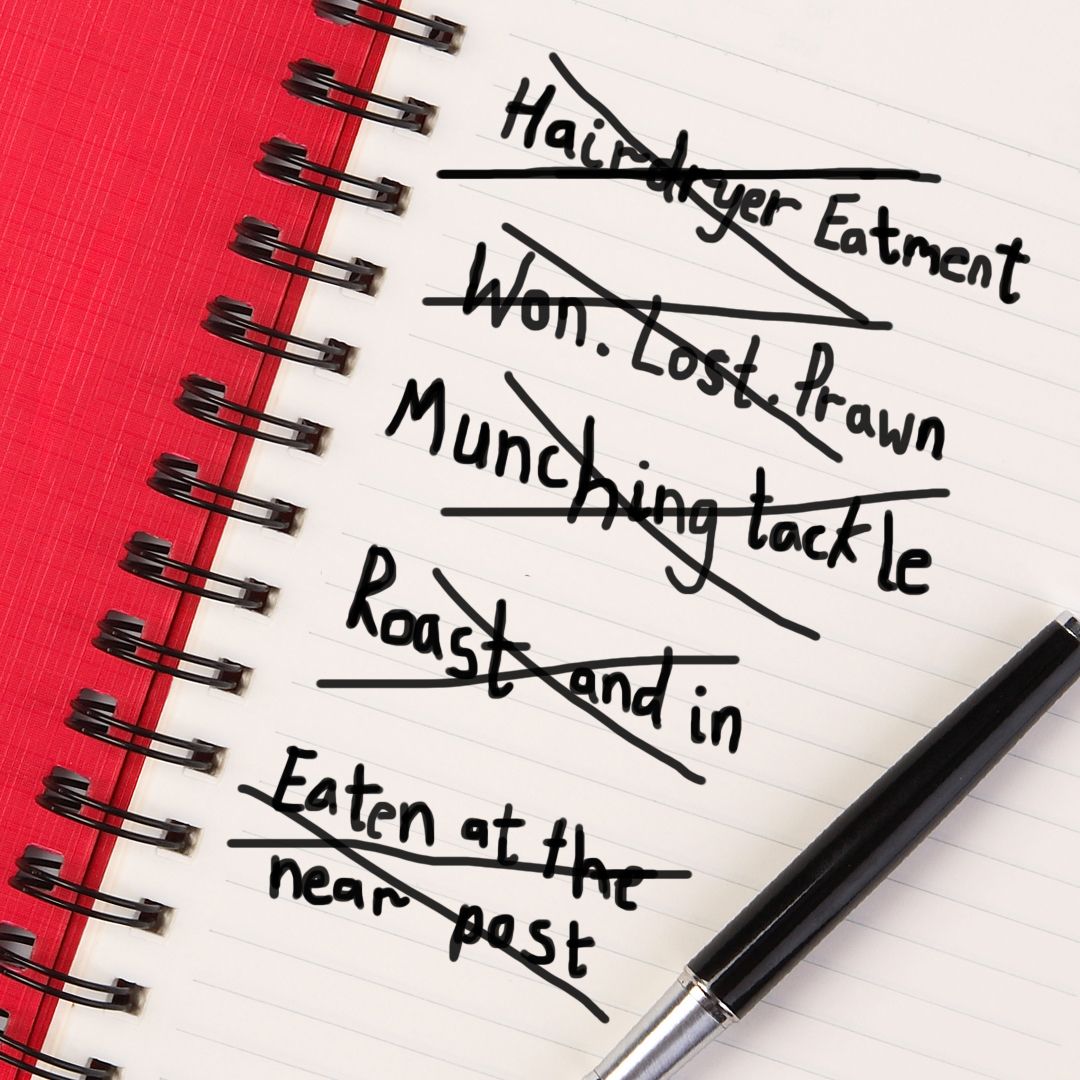 Hairdryer Eatment
Won. Lost. Prawn
Munching tackle
Roast and in
Eaten at the
near post